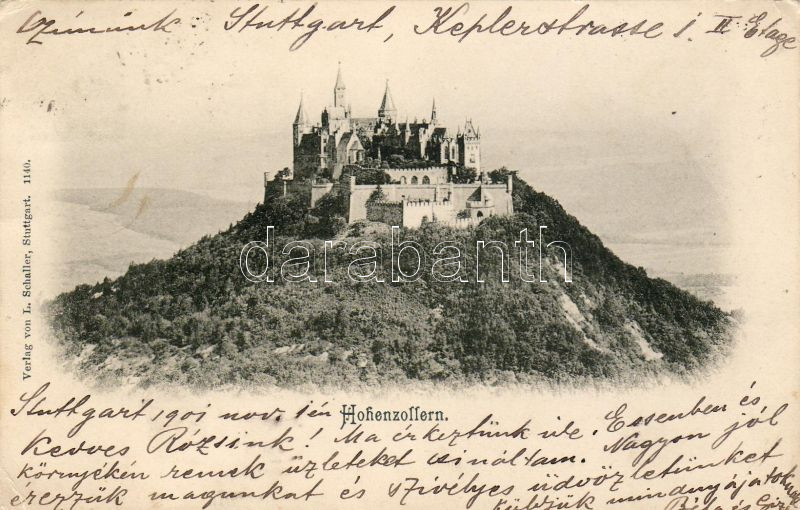 Czímünk Stuttgart, Keplerstrasse 1. II Etage
Verlag von L. Schaller, Stuttgart. 1140.
darabanth
Hohenzollern.
Stuttgart 1901 nov. 1én
Kedves Rózsink! Ma érkeztünk ide. Essenben és
környékén remek üzleteket csináltam. Nagyon jól
érezzük magunkat és szívélyes üdvözletünket
küldjük mindnyájatoknak
Béla és